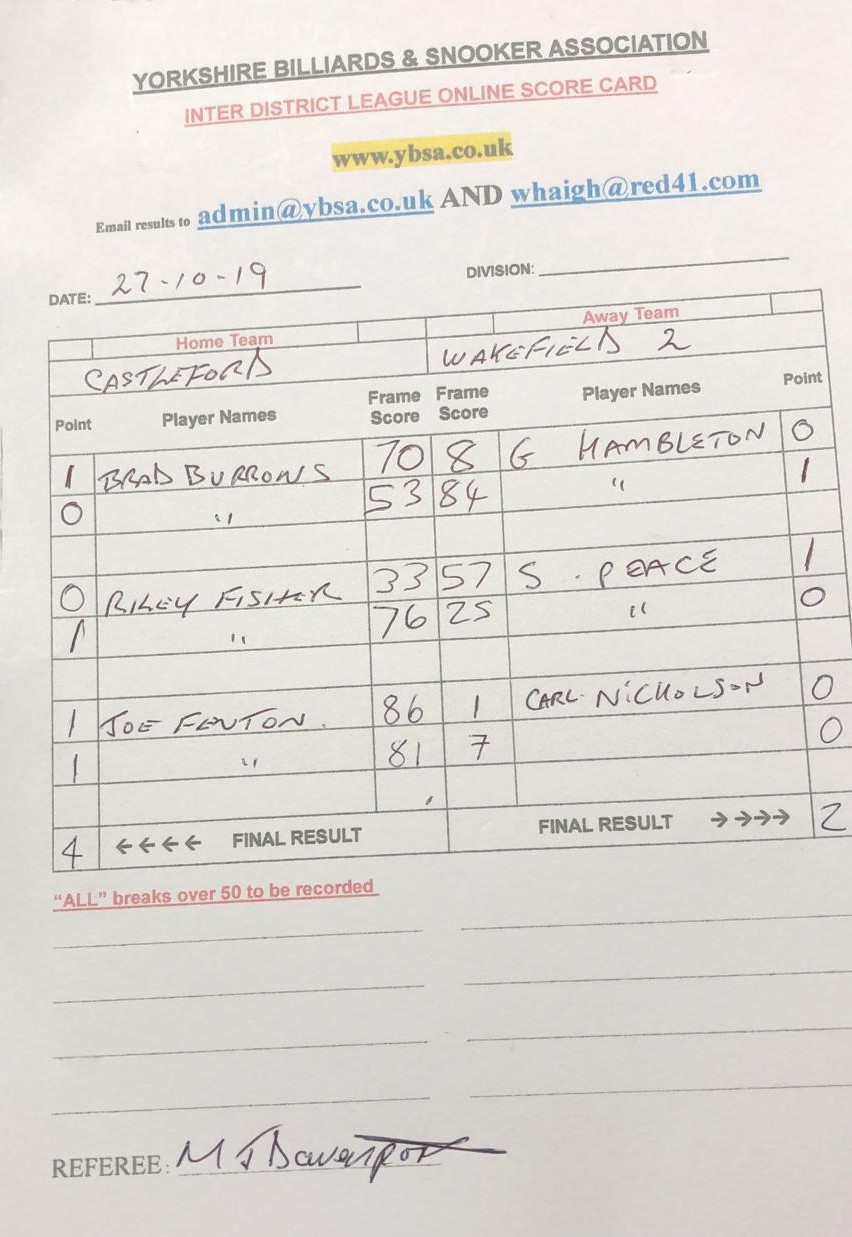 YORKSHIRE BILLIARDS & SNOOKER ASSOCIATION
INTER DISTRICT LEAGUE ONLINE SCORE CARD
www.ybsa.co.uk
Email results to admin@ybsa.co.uk AND whaigh@red41.com
DATE: 27-10-19 DIVISION:
Home Team Away Team
CASTLEFORD WAKEFIELD 2
Point Player Names Frame Score Frame Score Player Names Point
1 BRAD BURROWS 70 8 G HAMBLETON 0
0 " 53 84 " 1
0 RILEY FISHER 33 57 S. PEACE 1
1 " 76 25 " 0
1 JOE FENTON. 86 1 CARL NICHOLSON 0
1 " 81 7 0
4 ←←←← FINAL RESULT FINAL RESULT →→→→ 2
"ALL" breaks over 50 to be recorded
REFEREE: M J Davenport